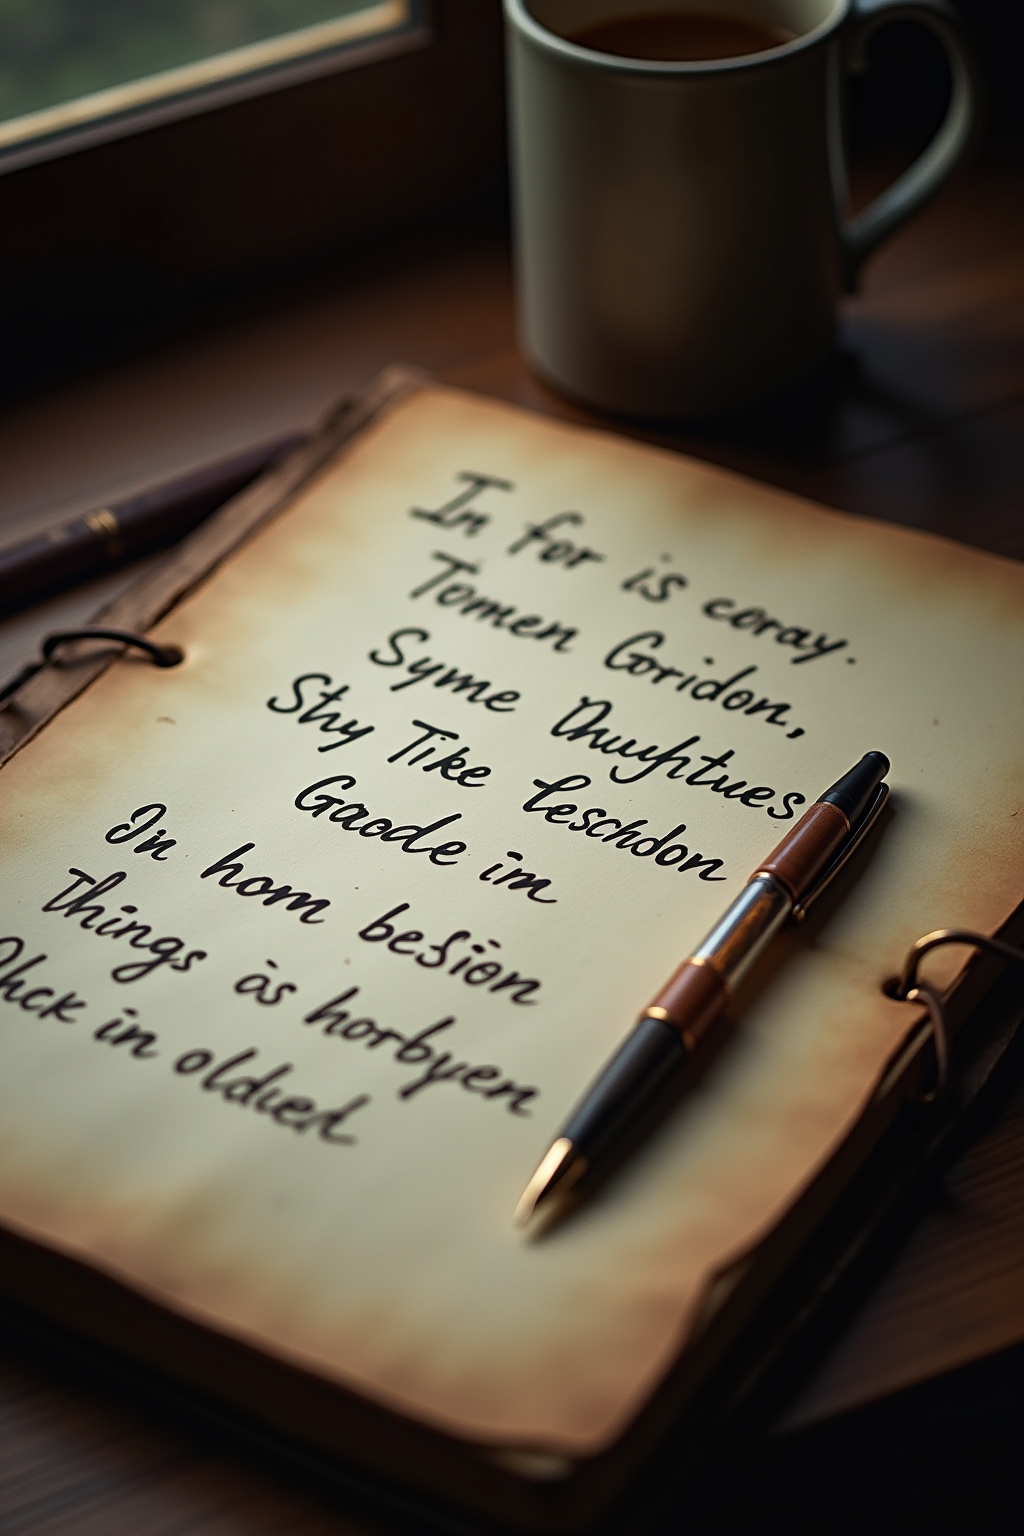 In for is coray.
Tomen Goridon,
Syme
Shy Tike leschdon
Gaode im
In hom besion
Things ås horbyen
in oldued